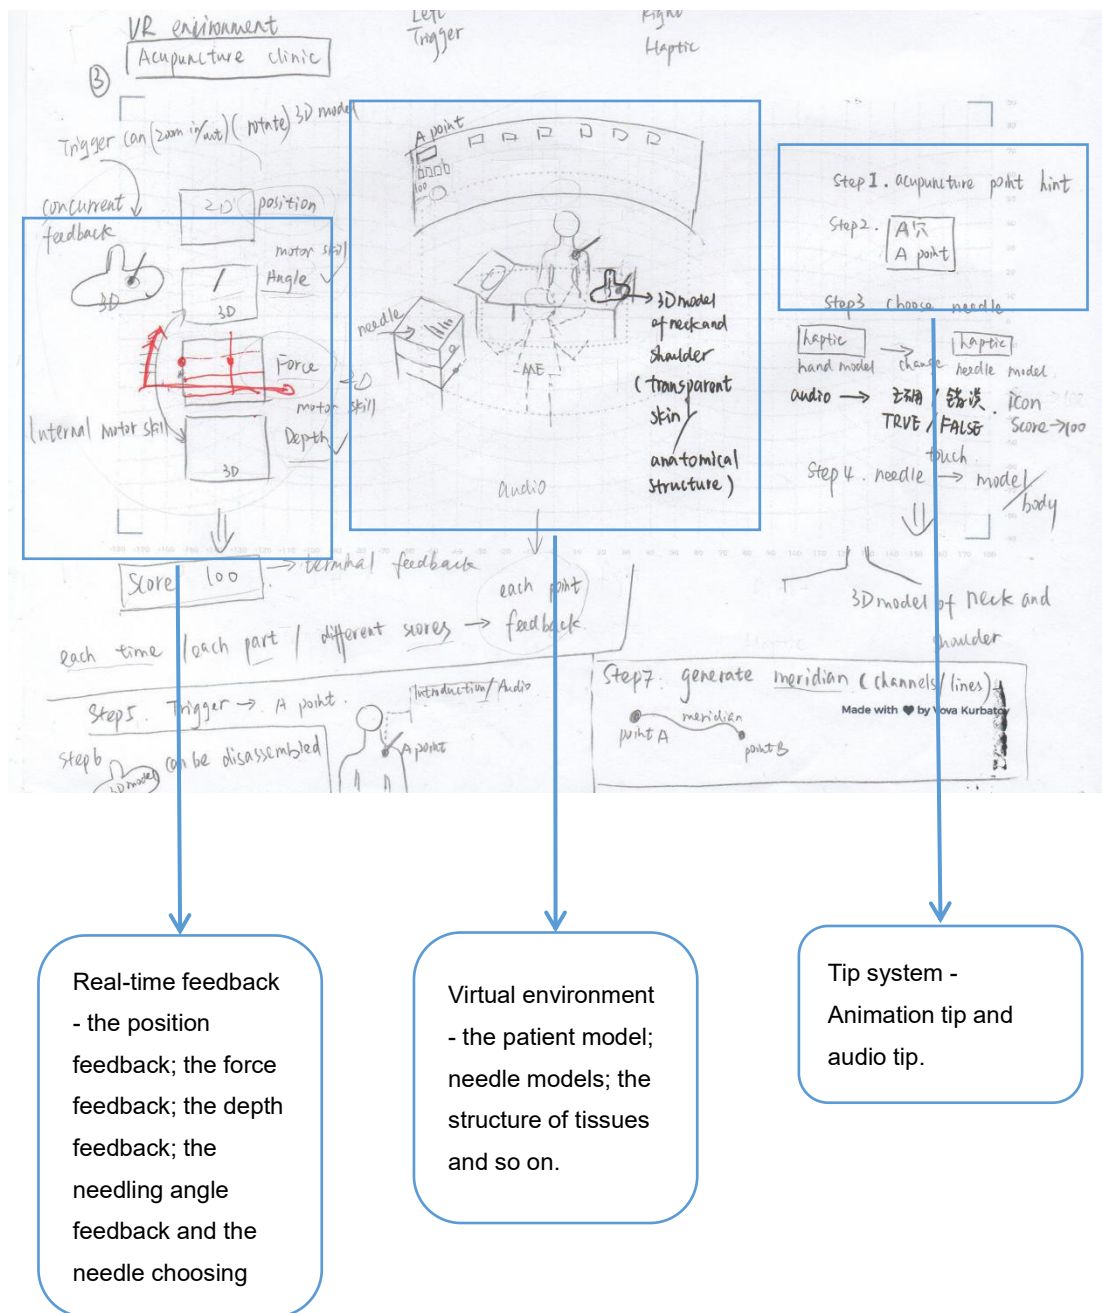 VR environment
Left
Trigger
Right
Haptic
Acupuncture clinic
3
Trigger can (zoom in/out) (rotate) 3D model
concurrent
feedback
2D
position
motor skill
3D
Angle
3D
Force
2D
motor skill
Internal motor skill
Depth
3D
A point
100
needle
ME
3D model
of neck and
shoulder
(transparent
skin
anatomical
structure)
audio
Step 1. acupuncture point hint
Step 2.
A穴
A point
Step 3 choose needle
haptic
haptic
hand model
change
needle model
audio → 正确 / 错误
icon
TRUE / FALSE
Score → 100
touch
Step 4. needle → model
/body
-180 -170
Score 100 → terminal feedback
each point
feedback
each time / each part / different scores →
3D model of neck and
shoulder
Step 5. Trigger → A point.
Introduction / Audio
Step 6
3D model
can be disassembled
A point
Step 7. generate meridian (channels/lines)
Made with ♥ by Vova Kurbatov
meridian
point A
point B
Real-time feedback
- the position
feedback; the force
feedback; the depth
feedback; the
needling angle
feedback and the
needle choosing
Virtual environment
- the patient model;
needle models; the
structure of tissues
and so on.
Tip system -
Animation tip and
audio tip.